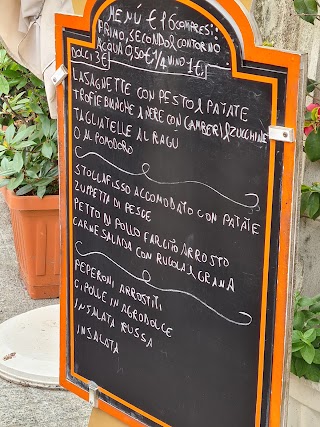 MENÚ € 16 COMPRES:
PRIMO, SECONDO & CONTORNO
ACQUA 0,50€ 1/4 VINO 1€
DOLCI 3€
LASAGNETTE CON PESTO & PATATE
TROFIE BIANCHE & NERE CON GAMBERI & ZUCCHINE
TAGLIATELLE AL RAGU
O AL POMODORO
STOCCAFISSO ACCOMODATO CON PATATE
ZUPPETTA DI PESCE
PETTO DI POLLO FARCITO ARROSTO
CARNE SALADA CON RUCOLA & GRANA
PEPERONI ARROSTITI
CIPOLLE IN AGRODOLCE
INSALATA RUSSA
INSALATA